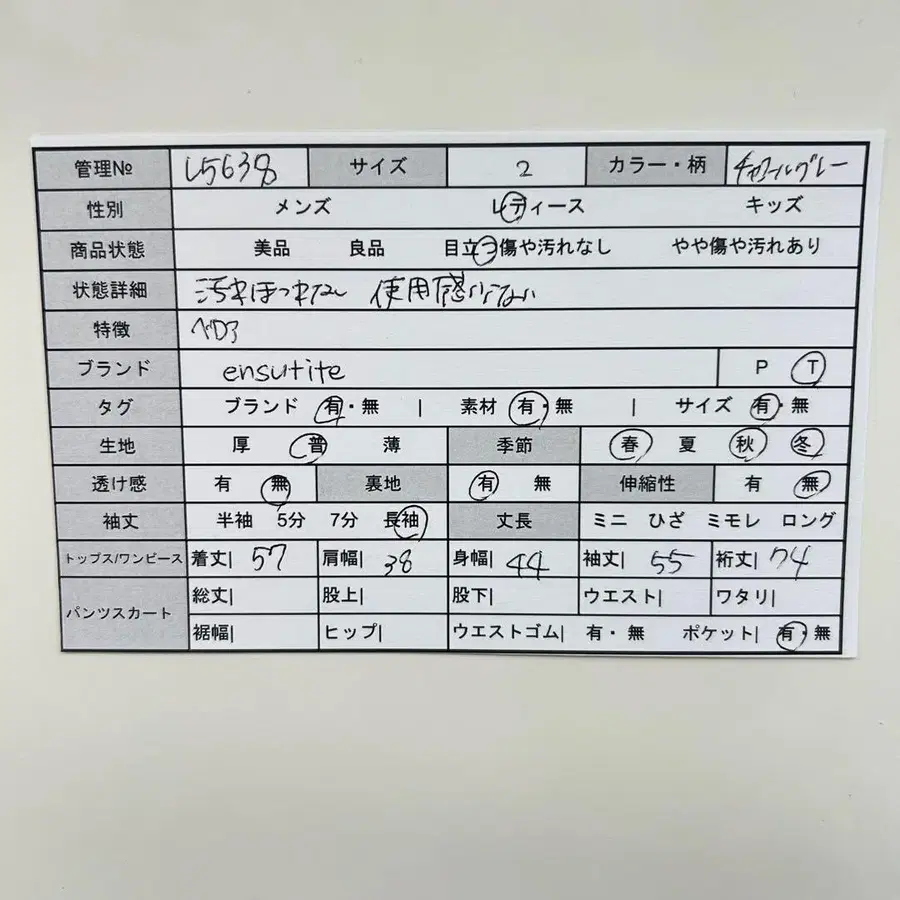 管理№ L5638 サイズ 2 カラー・柄 チャコールグレー
性別 メンズ レディース キッズ
商品状態 美品 良品 目立つ傷や汚れなし やや傷や汚れあり
状態詳細 汚れほつれなし 使用感少ない
特徴 ベロア
ブランド ensutite P T
タグ ブランド 有・無 | 素材 有・無 | サイズ 有・無
生地 厚 普 薄 季節 春 夏 秋 冬
透け感 有 無 裏地 有 無 伸縮性 有 無
袖丈 半袖 5分 7分 長袖 丈長 ミニ ひざ ミモレ ロング
トップス/ワンピース 着丈| 57 肩幅| 38 身幅| 44 袖丈| 55 裄丈| 74
パンツスカート 総丈| 股上| 股下| ウエスト| ワタリ|
裾幅| ヒップ| ウエストゴム| 有・無 ポケット| 有・無